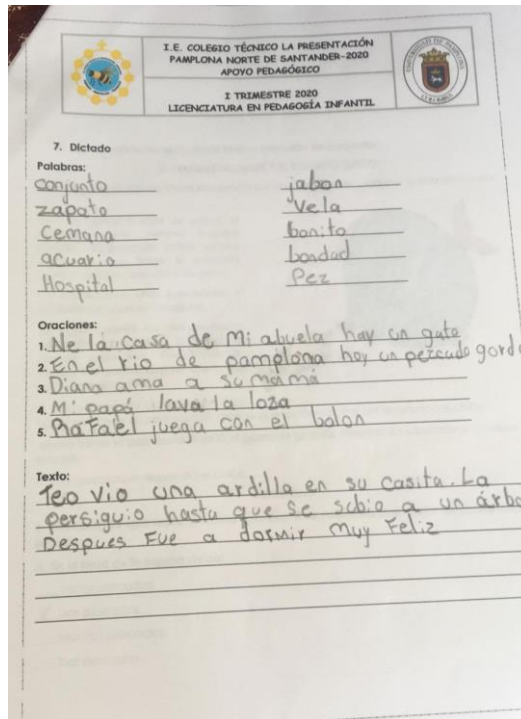 I.E. COLEGIO TÉCNICO LA PRESENTACIÓN
PAMPLONA NORTE DE SANTANDER-2020
APOYO PEDAGÓGICO
I TRIMESTRE 2020
LICENCIATURA EN PEDAGOGÍA INFANTIL
7. Dictado
Palabras:
conjunto
zapato
Cemana
acuario
Hospital
jabon
Vela
bonito
bondad
Pez
Oraciones:
1. Ne la casa de mi abuela hay un gato
2. En el rio de pamplona hay un pezcado gordo
3. Diana ama a su mamá
4. Mi papá lava la loza
5. Rafael juega con el balon
Texto:
Teo vio una ardilla en su casita. La
persiguio hasta que se subio a un árbo
Despues Fue a dormir muy Feliz